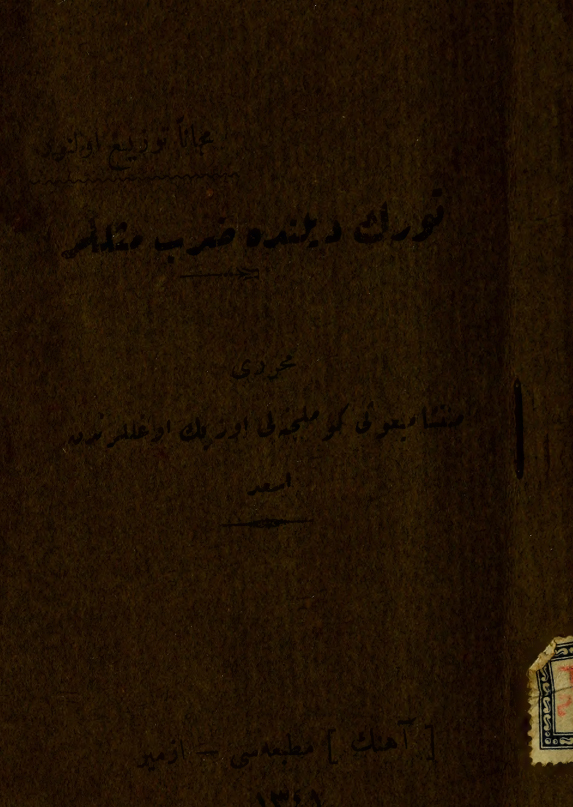 مجاناً توزيع اولنور
تورك ديلنده ضرب مثللر
محررى
منتشا مبعوثى كوملجنه لى اوزبك اوغللرندن
اسعد
[ آهنك ] مطبعه سى — ازمير